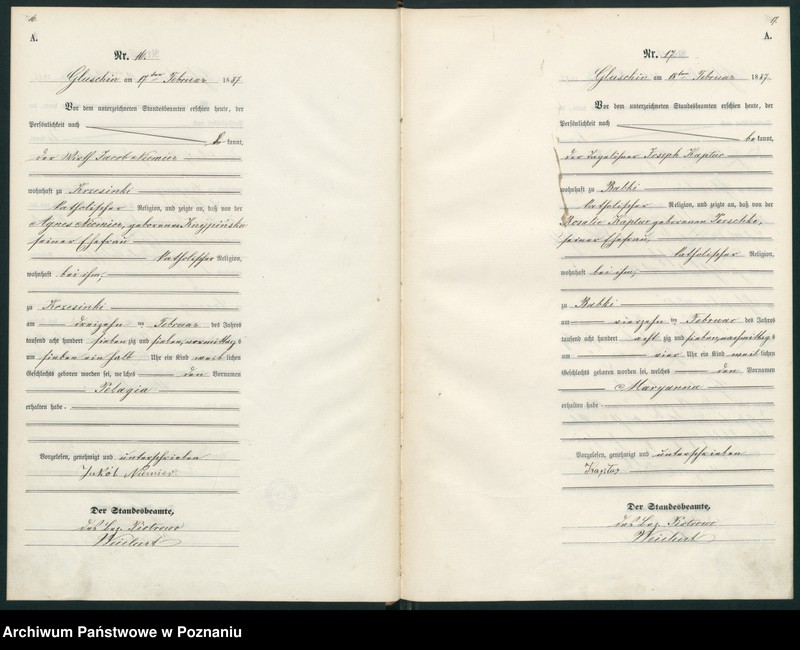 16.
A.
Nr. 16.
Gluschin am 17ten Februar 1887
Vor dem unterzeichneten Standesbeamten erschien heute, der
Persönlichkeit nach
be kannt,
der Wirth Jacob Niemier
wohnhaft zu Krzesinki
katholischer Religion, und zeigte an, daß von der
Agnes Niemier, geborenen
seiner Ehefrau
katholischer Religion,
wohnhaft bei ihm,
zu Krzesinki
am dreizehn ten Februar des Jahres
tausend acht hundert zig und sieben, vormittag s
um sieben ein halb Uhr ein Kind weib lichen
Geschlechts geboren worden sei, welches den Vornamen
Pelagia
erhalten habe.
Vorgelesen, genehmigt und unterschrieben
Jakób Niemier
Der Standesbeamte,
des Bez. Piotrowo
Weichert
17.
A.
Nr. 17.
Gluschin am 18ten Februar 1887.
Vor dem unterzeichneten Standesbeamten erschien heute, der
Persönlichkeit nach
be kannt,
der Tagelöhner Joseph Kaptur
wohnhaft zu Babki
katholischer Religion, und zeigte an, daß von der
Rosalie Kaptur geborenen
seiner Ehefrau,
katholischer Religion,
wohnhaft bei ihm,
zu Babki
am vierzehn ten Februar des Jahres
tausend acht hundert acht zig und sieben, nachmittag s
um vier Uhr ein Kind weib lichen
Geschlechts geboren worden sei, welches den Vornamen
Maryanna
erhalten habe
Vorgelesen, genehmigt und unterschrieben
Kaptur
Der Standesbeamte,
des Bez. Piotrowo
Weichert
Archiwum Państwowe w Poznaniu